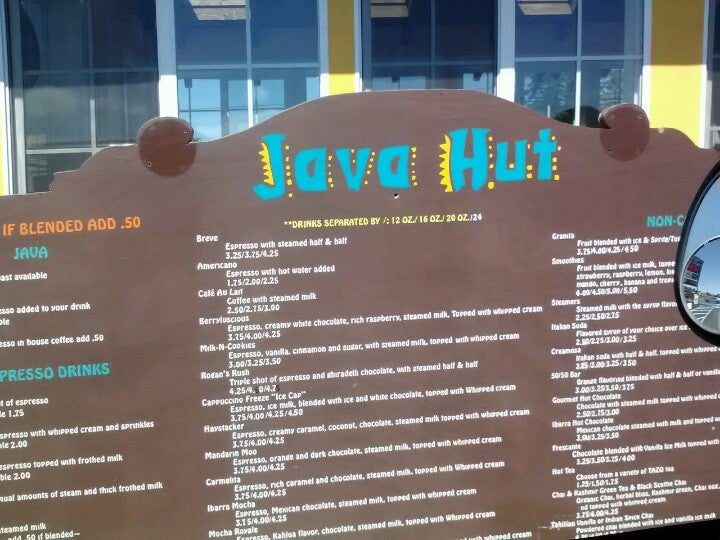 Java Hut
**DRINKS SEPARATED BY /: 12 OZ./ 16 OZ./ 20 OZ./24
IF BLENDED ADD .50
JAVA
ast available
esso added to your drink
ble
esso in house coffee add .50
PRESSO DRINKS
ot of espresso
ble 1.75
esso with whipped cream and sprinkles
ble 2.00
esso topped with frothed milk
ble 2.00
qual amounts of steam and thick frothed milk
steamed milk
.50 if blended~
Breve
Espresso with steamed half & half
3.25/3.75/4.25
Americano
Espresso with hot water added
1.75/2.00/2.25
Café Au Lait
Coffee with steamed milk
2.50/2.75/3.00
Berryluscious
Espresso, creamy white chocolate, rich raspberry, steamed milk, Topped with whipped cream
3.75/4.00/4.25
Milk-N-Cookies
Espresso, vanilla, cinnamon and sugar, with steamed milk, topped with whipped cream
3.00/3.25/3.50
Rogan's Rush
Triple shot of espresso and ghiradelli chocolate, with steamed half & half
Cappuccino Freeze "Ice Cap"
Espresso, ice milk, blended with ice and white chocolate, topped with Whipped cream
3.75/4.00/4.25/4.50
Haystacker
Espresso, creamy caramel, coconut, chocolate, steamed milk, topped with whipped cream
3.75/4.00/4.25
Mandarin Moo
Espresso, orange and dark chocolate, steamed milk, topped with whipped cream
3.75/4.00/4.25
Carmelita
Espresso, rich caramel and chocolate, steamed milk, topped with whipped cream
3.75/4.00/4.25
Ibarra Mocha
Espresso, Mexican chocolate, steamed milk, topped with whipped cream
3.75/4.00/4.25
Mocha Royale
Espresso, Kahlua flavor, chocolate, steamed milk, topped with Whipped cream
NON-C
Granita
Fruit blended with ice & Sprite/
3.75/4.00/4.25/4.50
Smoothies
Fruit blended with ice milk, topped
strawberry, raspberry, lemon,
mango, cherry, banana and
4.00/4.50/5.00/5.50
Steamers
Steamed milk with the syrup flavor
2.25/2.50/2.75
Italian Soda
Flavored syrup of your choice over ice
2.50/2.75/3.00/3.25
Creamosa
Italian soda with half & half, topped with whipped
2.85/3.00/3.25/3.50
50/50 Bar
Orange flavoring blended with half & half or vanilla
3.00/3.25/3.50/3.75
Gourmet Hot Chocolate
Chocolate with steamed milk topped with whipped
2.50/2.75/3.00
Ibarra Hot Chocolate
Mexican chocolate steamed milk with
3.00/3.25/3.50
Frescante
Chocolate blended with Vanilla Ice Milk topped with
3.25/3.50/3.75/4.00
Hot Tea
Choose from a variety of TAZO tea
1.25/1.50/1.75
Chai & Kashmir Green Tea & Black Scottie Chai
Organic Chai, herbal bliss, Kashmir green, Chai
nd topped with whipped cream
3.75/4.00/4.25
Tahitian Vanilla or Indian Spice Chai
Powdered chai blended with ice and vanilla ice milk